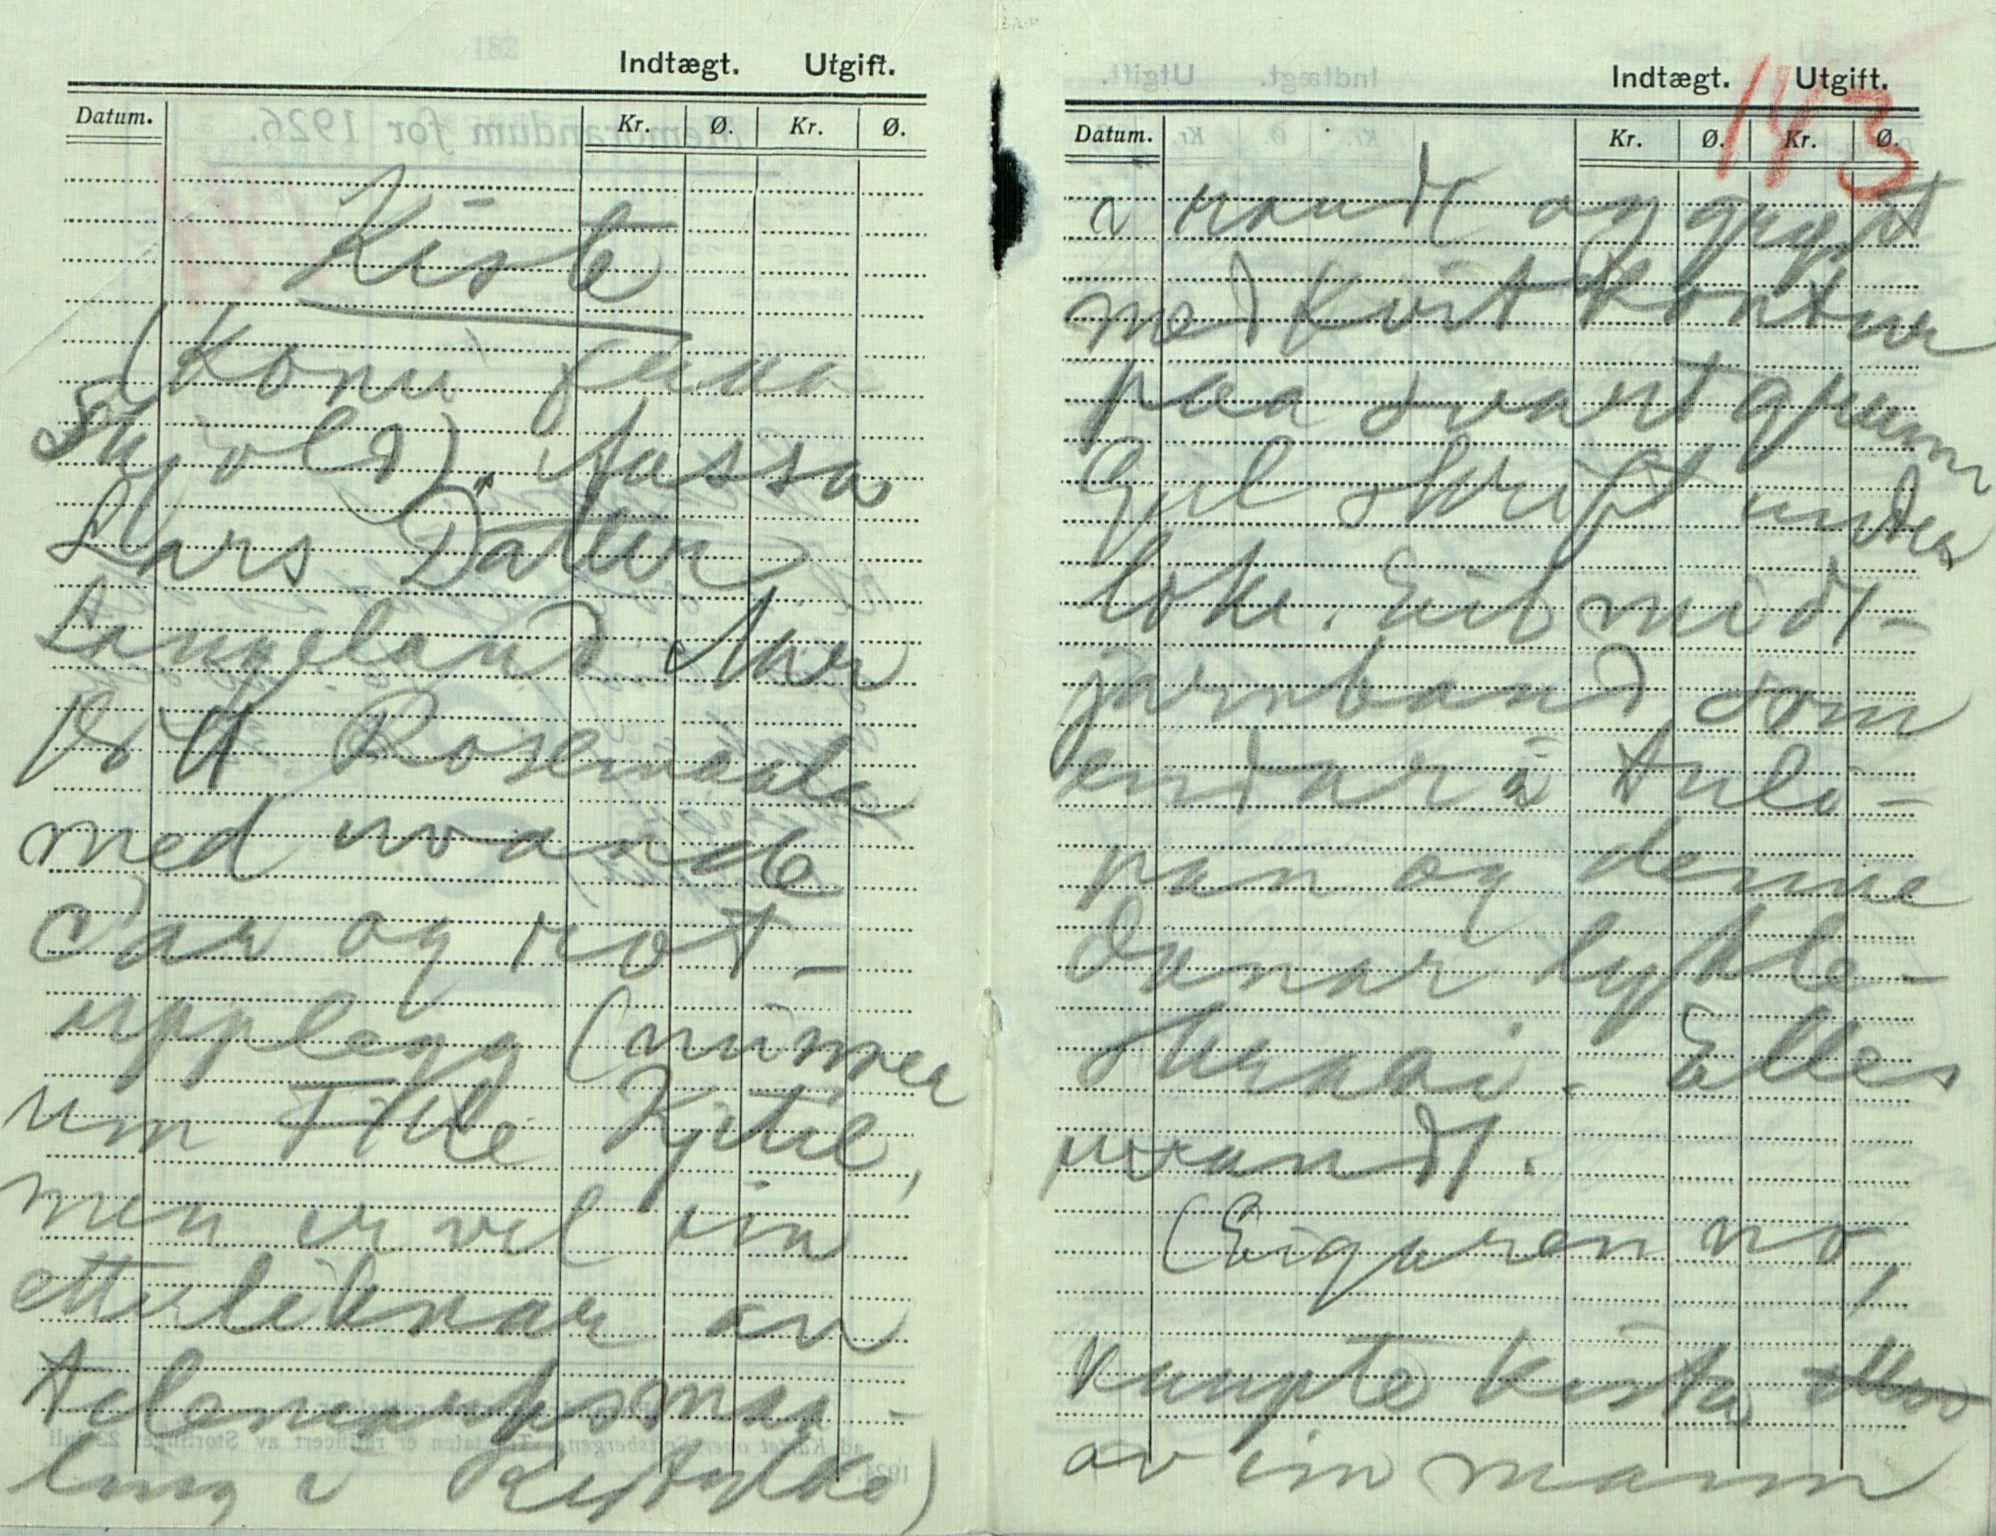 Indtægt. Utgift.
Datum. Kr. Ø. Kr. Ø.
Kiste
(Komi fraa
Skjold). Aassa
Lars Datter
Langeland Aar
1811 Rosemaala
med uvande
Dar og rot-
upplegg (minner
um Tille Kjetil,
men er vel ein
etterliknar av
telemarksmaa-
ling i Rystykke)
Indtægt. Utgift.
143
Datum. Kr. Ø. Kr. Ø.
i raudt og gryt
med kvit Kontur
paa svart grunn
Gul skrift under
loke. Eit midt-
jarnband som
endar i tuli-
pan og denne
danar lykle-
skrani. Elles
uvandt.
(Eigaren no,
kaupte kista
av ein mann